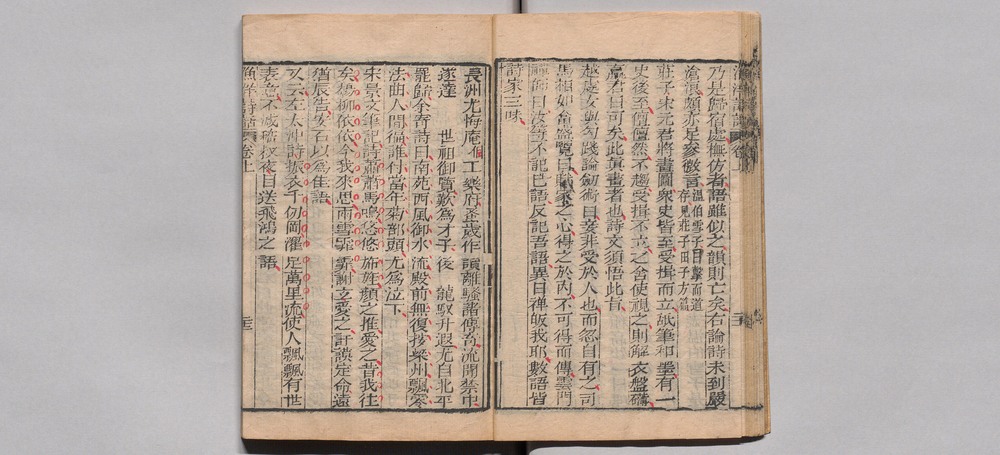 漁洋詩話 卷上
乃是歸宿處橅仿者語雖似之韻則亡矣右論詩未到嚴
滄浪頗亦足參微言 溫伯雪子目擊而道
存見莊子田子方篇
莊子宋元君將畫圖衆史皆至受揖而立舐筆和墨有一
史後至儃儃然不趨受揖不立之舍使視之則解衣盤礴
臝君曰可矣此眞畫者也詩文須悟此旨
越處女與勾踐論劒術曰妾非受於人也而忽自有之司
馬相如答盛覽曰賦家之心得之於內不可得而傳雲門
禪師曰汝等不記己語反記吾語異日稗販我耶數語皆
詩家三昧
長洲尤悔庵侗工樂府盛歲作讀離騷諸傳奇流聞禁中
遂達 世祖御覽歎爲才子後 龍馭升遐尤自北平
罷歸余寄詩曰南苑西風御水流殿前無復按梁州飄零
法曲人間徧誰付當年菊部頭尤爲泣下
宋景文筆記詩蕭蕭馬鳴悠悠旆旌顏之推愛之昔我往
矣楊柳依依今我來思雨雪霏霏謝玄愛之訏謨定命遠
猶辰告安石以爲佳語
又云左太沖詩振衣千仞岡濯足萬里流使人飄飄有世
表意不減嵇叔夜目送飛鴻之語
漁洋詩話 卷上